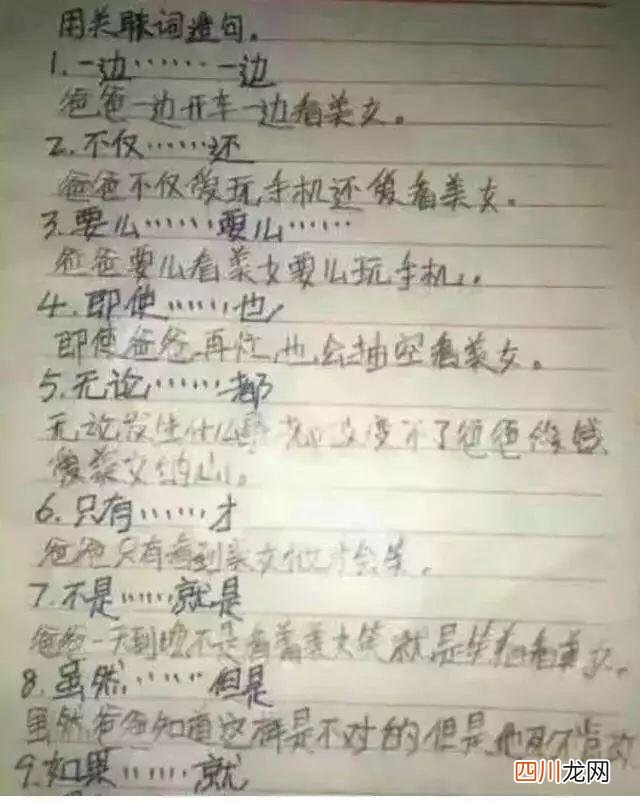 用关联词造句。
1.一边……一边
爸爸一边开车一边看美女。
2.不仅……还
爸爸不仅爱玩手机还爱看美女。
3.要么……要么……
爸爸要么看美女要么玩手机。
4.即使……也
即使爸爸再忙,也会抽空看美女。
5.无论……都
无论发生什么事都改变不了爸爸
爱美女的心。
6.只有……才
爸爸只有看到美女他才会笑。
7.不是……就是
爸爸一天到晚不是看着美女笑就是坐着看美女。
8.虽然……但是
虽然爸爸知道这样是不对的但是他死不悔改
9.如果……就
四川龙网